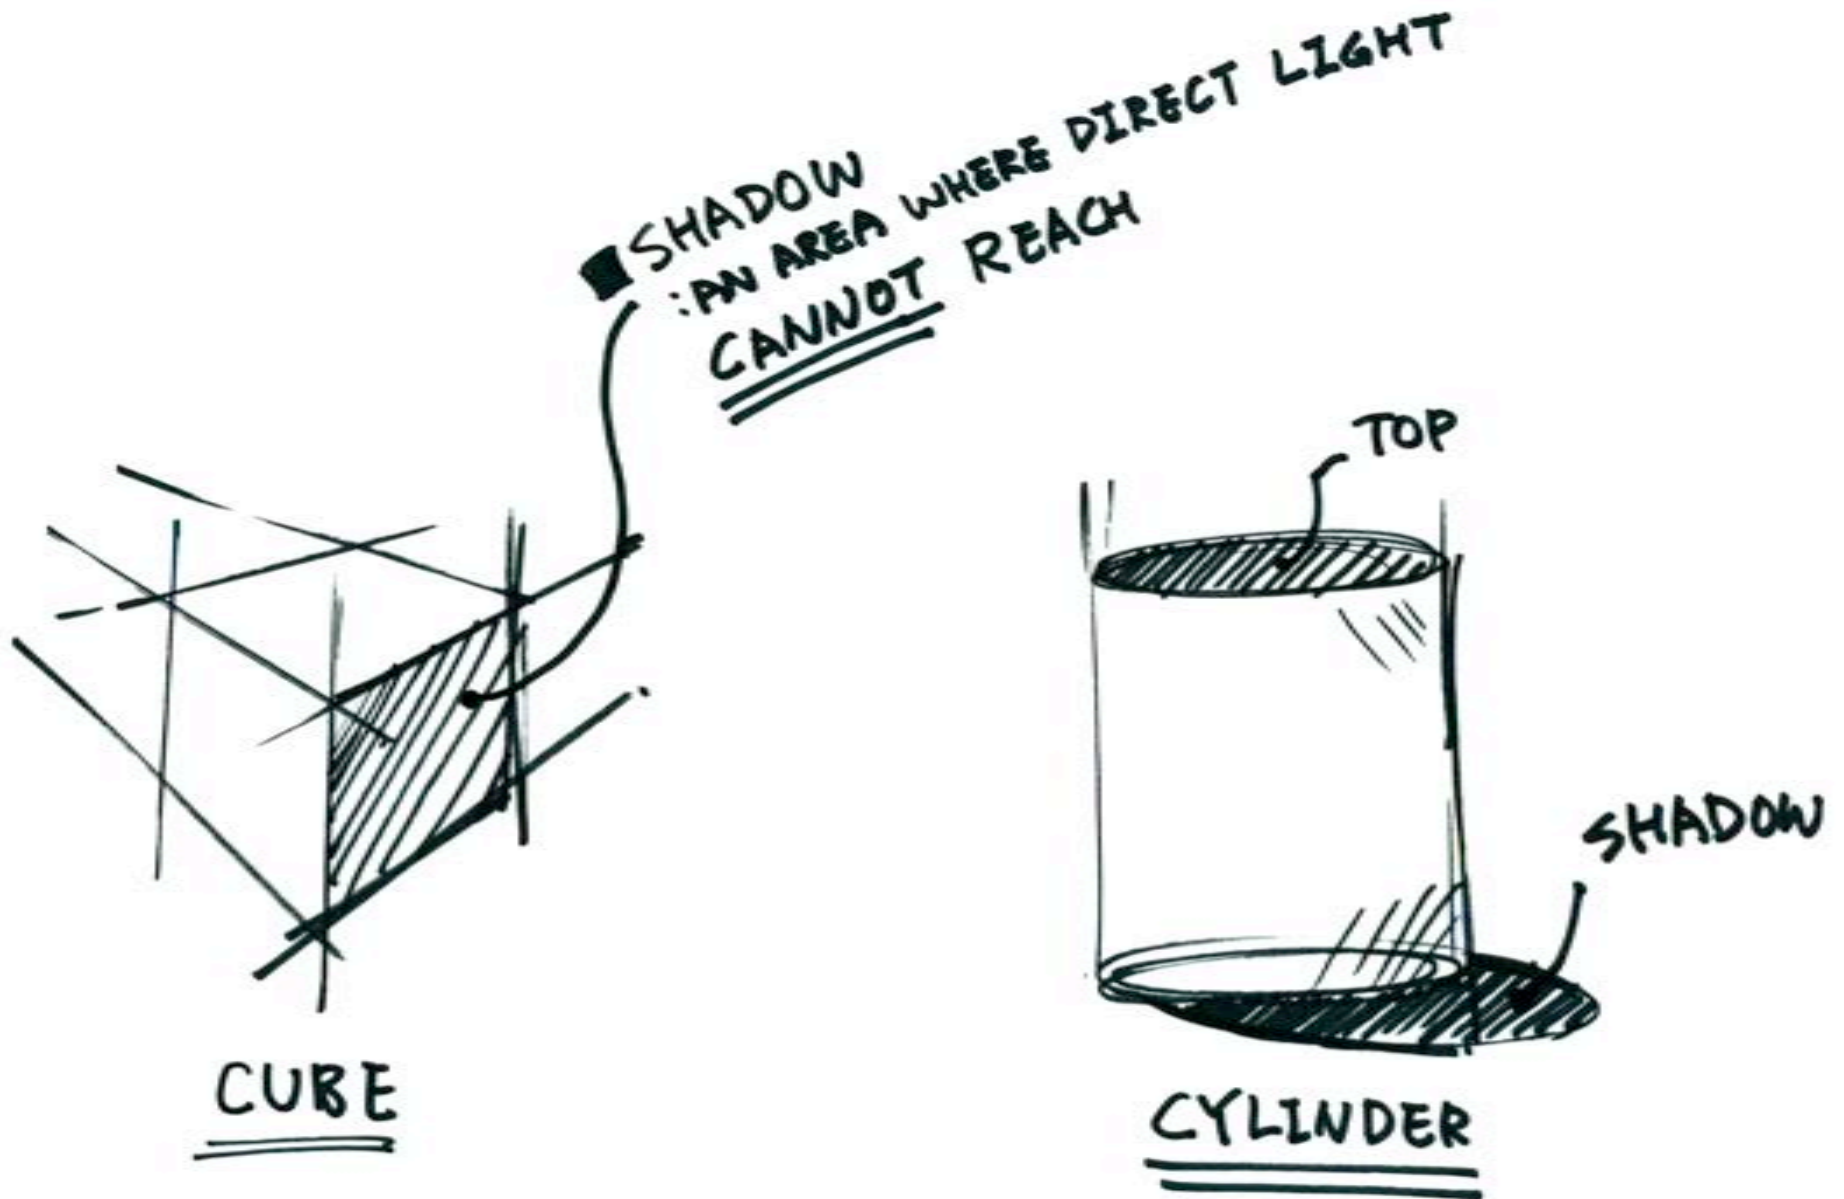 ■ SHADOW
: AN AREA WHERE DIRECT LIGHT
CANNOT REACH
TOP
SHADOW
CUBE
CYLINDER